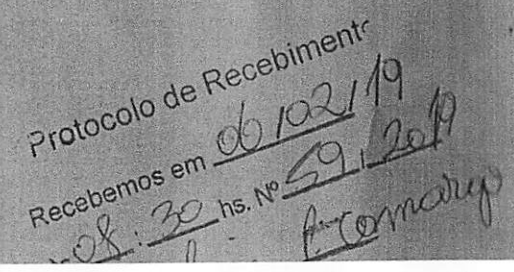 Protocolo de Recebimento
Recebemos em 06/02/19
08:30 hs. Nº 59, 2019